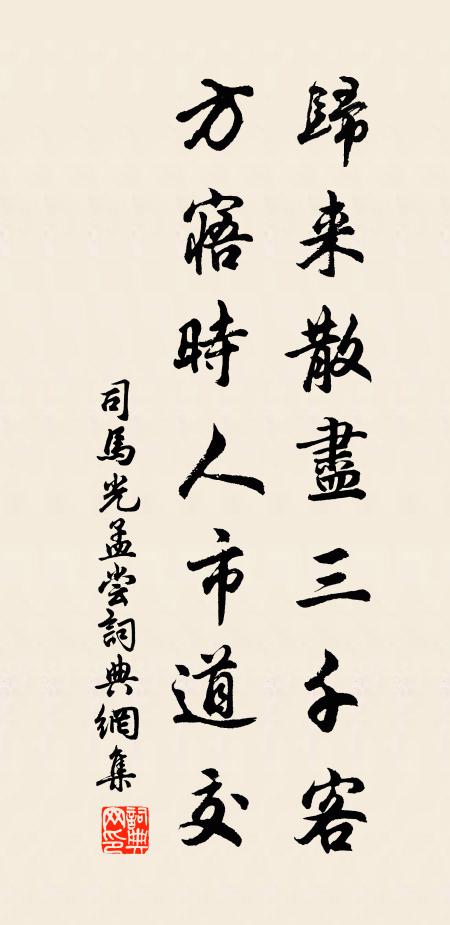 歸来散盡三千客
方寤時人市道交
司馬光孟尝詞典網集
詞典網印